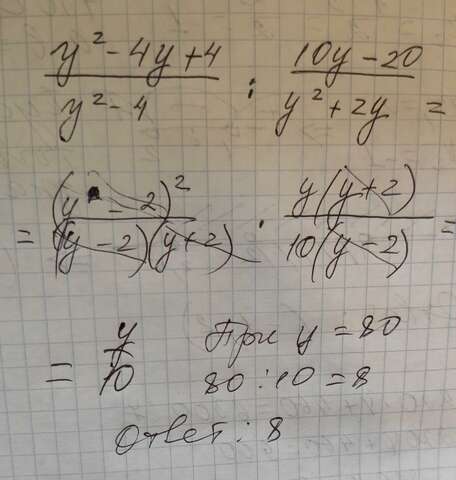 y² - 4y + 4 / y² - 4 : 10y - 20 / y² + 2y =
= (y - 2)² / (y - 2)(y + 2) · y(y + 2) / 10(y - 2) =
= y / 10 При y = 80
80 : 10 = 8
Ответ: 8